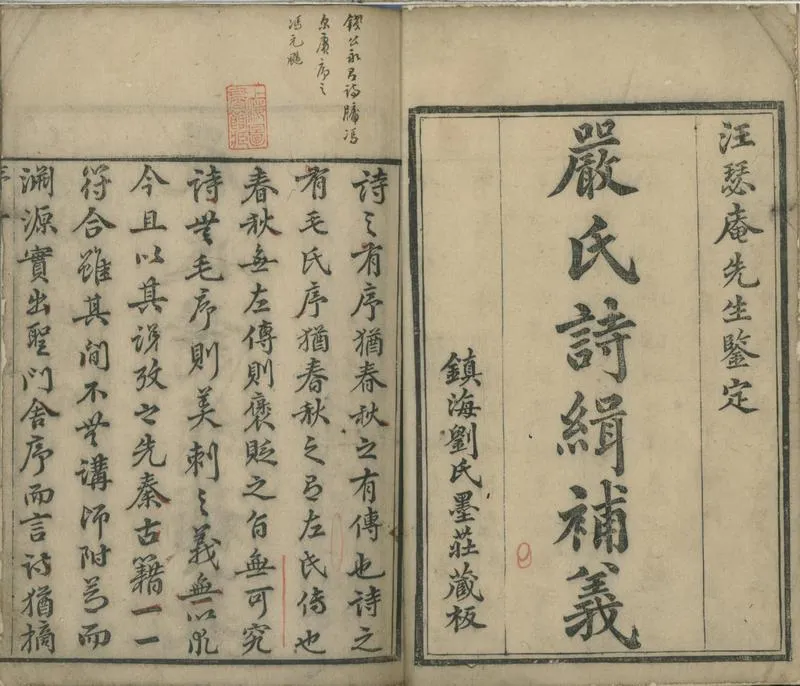 汪瑟庵先生鑒定
嚴氏詩緝補義
鎮海劉氏墨莊藏板
上海圖書館藏
馮元颷
詩之有序猶春秋之有傳也詩之
有毛氏序猶春秋之有左氏傳也
春秋無左傳則褒貶之旨無可究
詩無毛序則美刺之義無以見
今且以其說攷之先秦古籍一一
符合雖其間不無講師附益而
淵源實出聖門舍序而言詩猶摘